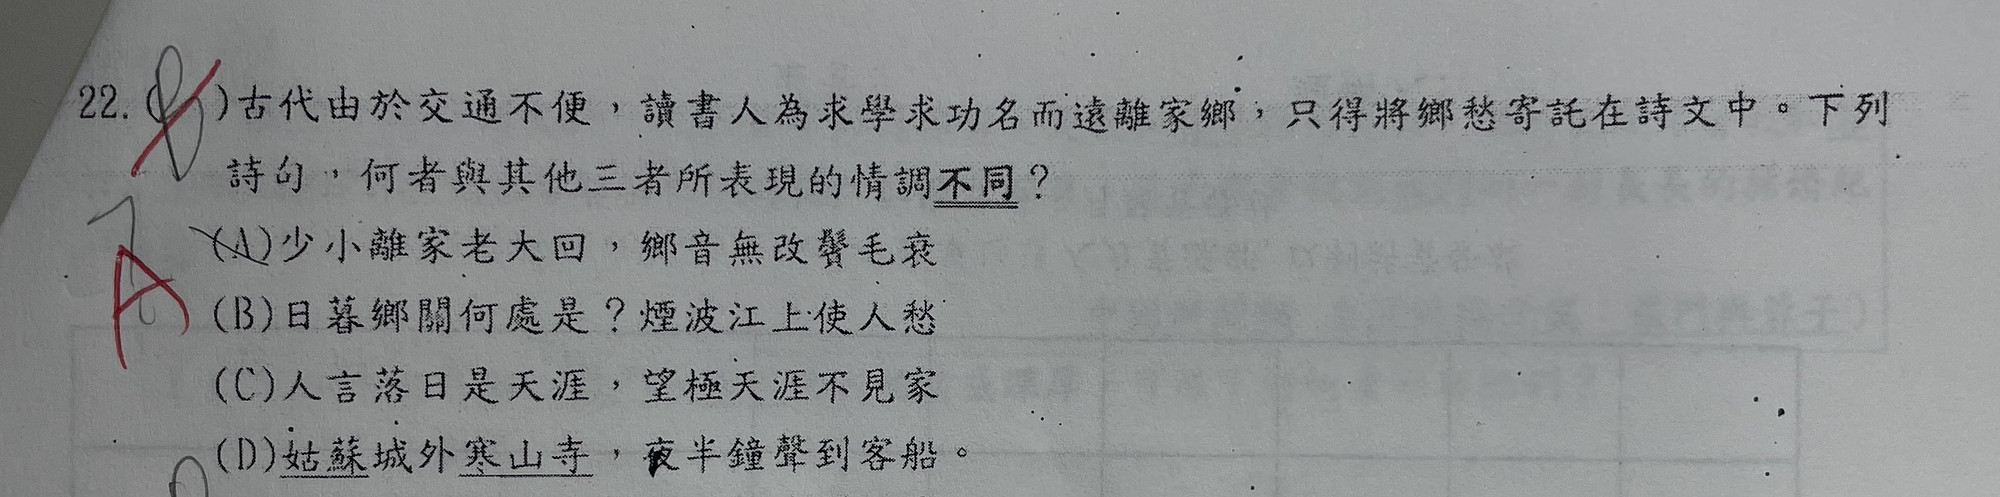 22.( )古代由於交通不便，讀書人為求學求功名而遠離家鄉，只得將鄉愁寄託在詩文中。下列
詩句，何者與其他三者所表現的情調不同？
A
(A)少小離家老大回，鄉音無改鬢毛衰
(B)日暮鄉關何處是？煙波江上使人愁
(C)人言落日是天涯，望極天涯不見家
(D)姑蘇城外寒山寺，夜半鐘聲到客船。